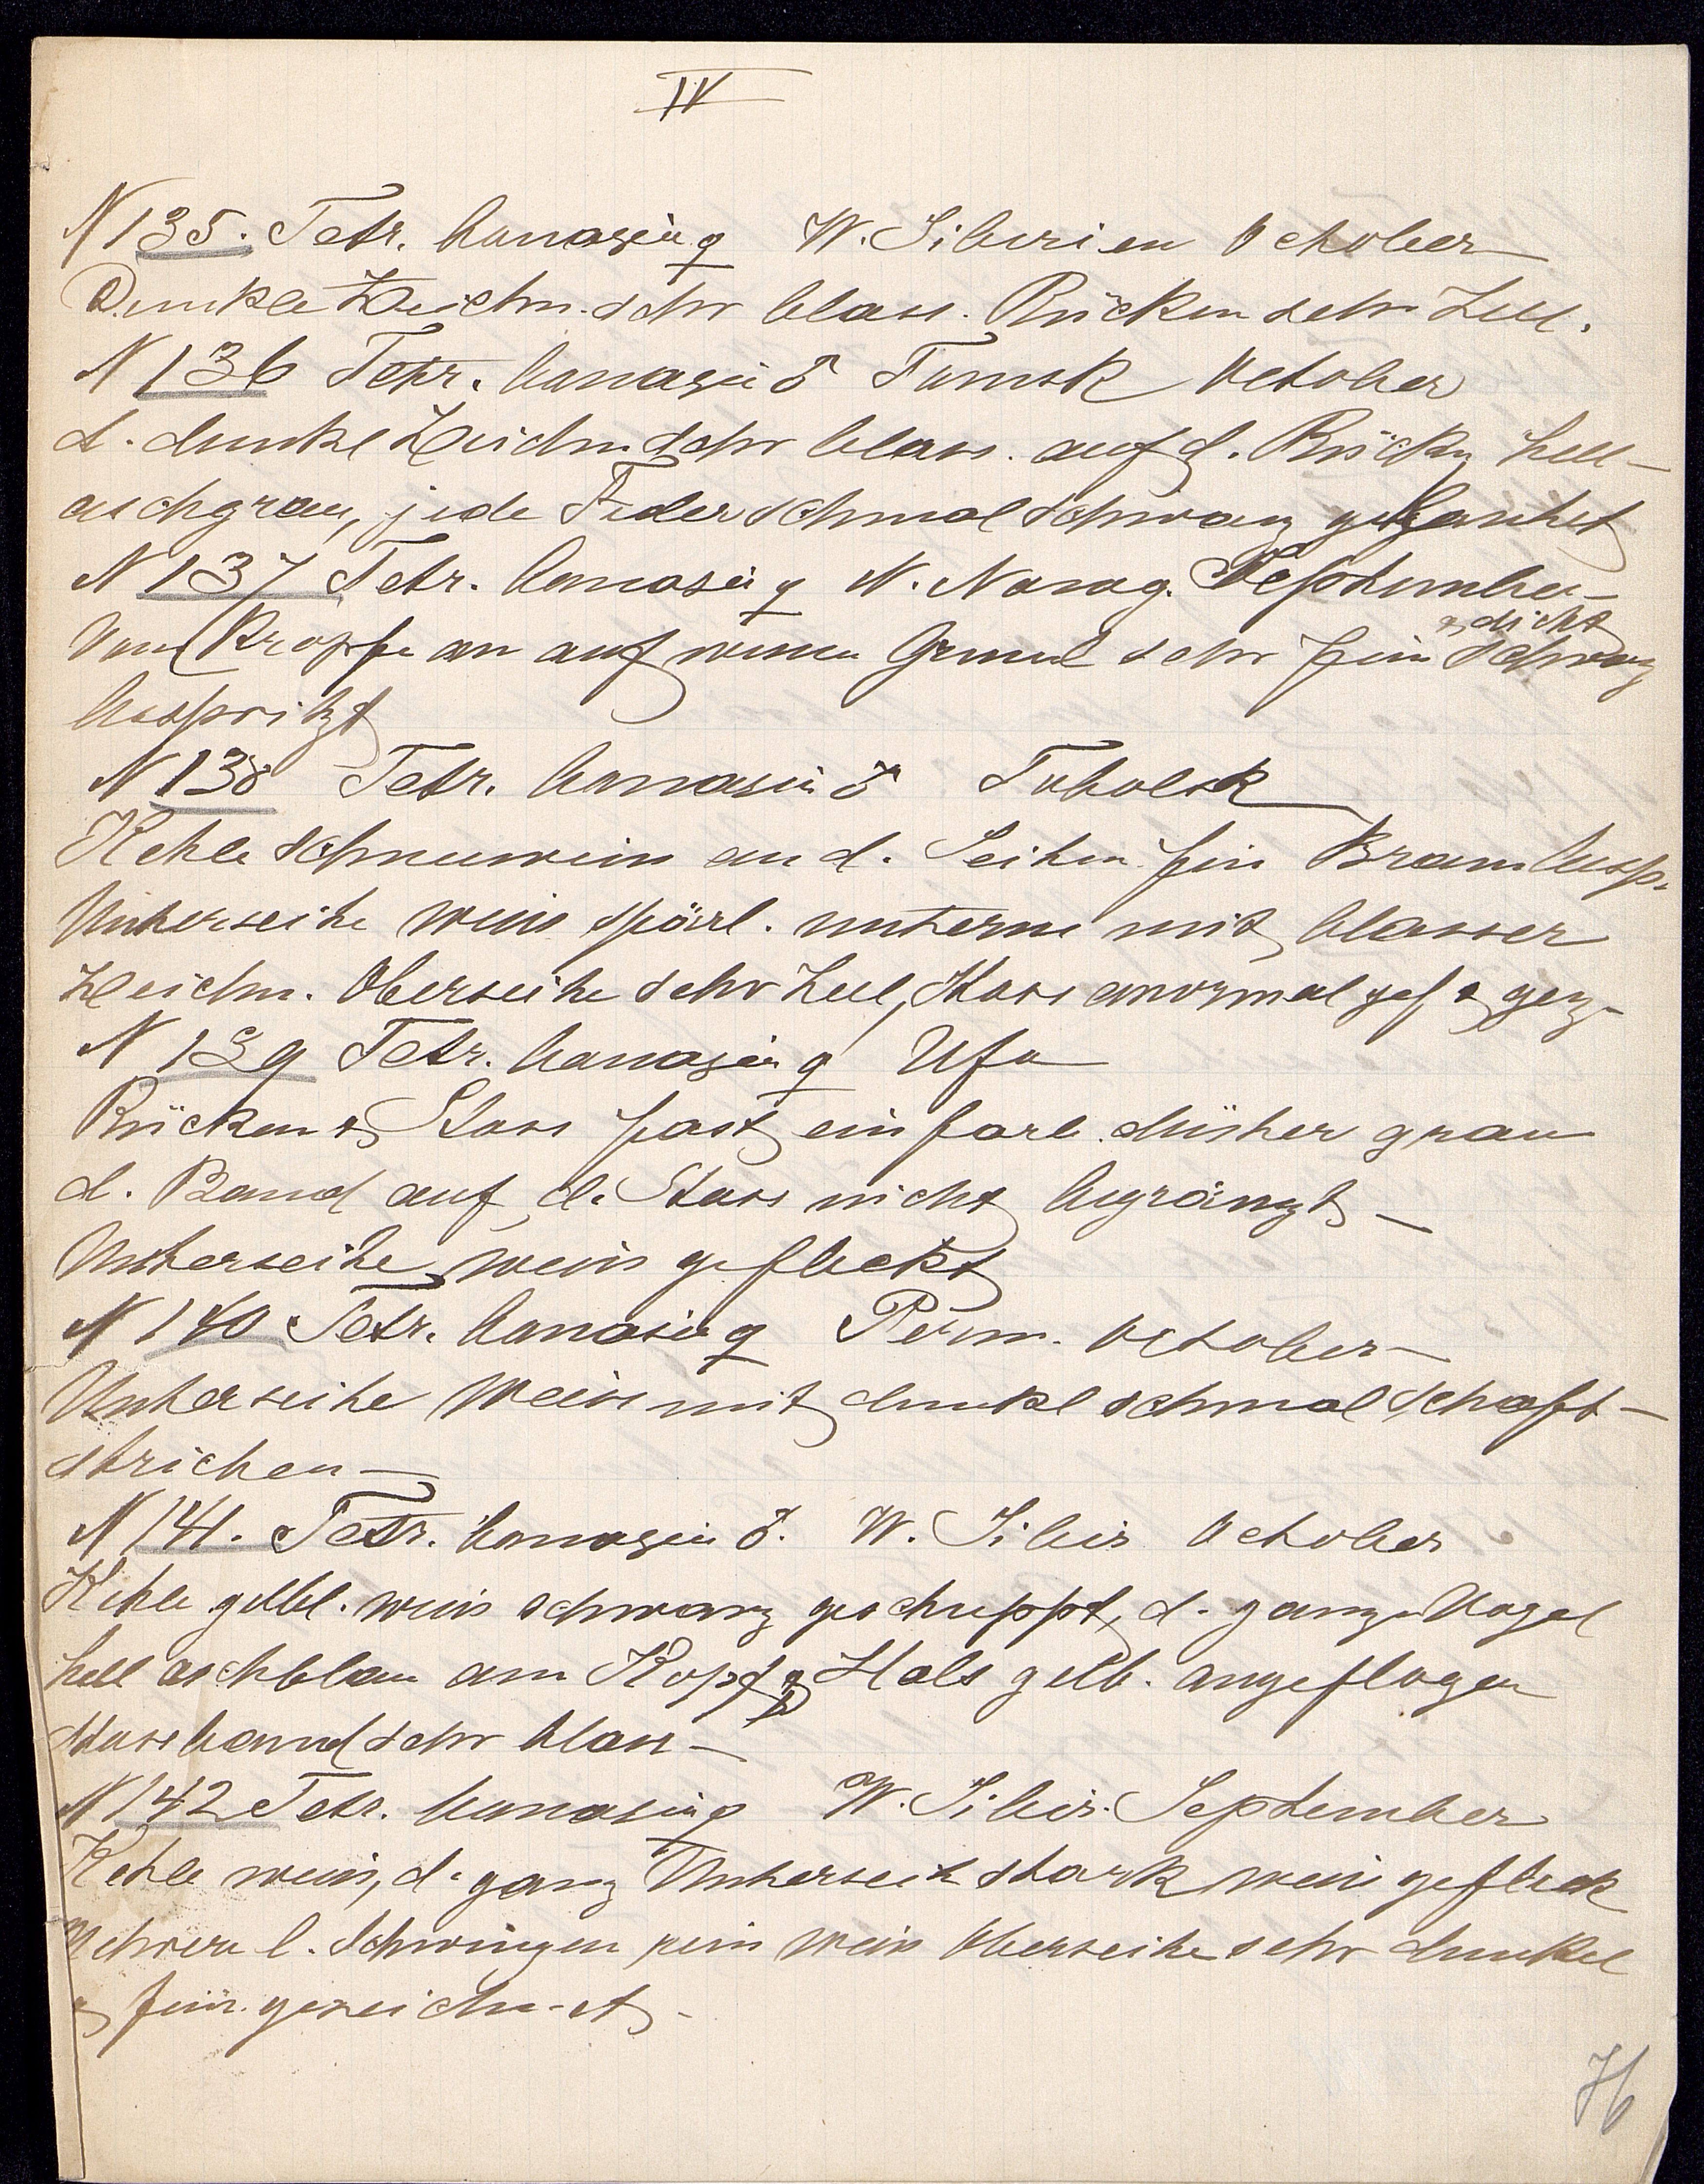 IV
N 135. Tetr. bonasia ♀ W. Sibirien October
Dunkle Zeichn. sehr blass. Rücken sehr hell.
N 136 Tetr. bonasia ♂ Tomsk October
d. dunkl Zeichn sehr blass. auf d. Rücken hell-
aschgrau, jede Feder schmal schwarz gebändert
N 137 Tetr. bonasia ♀ N. Nowg. September
Vom Kropfe an auf weissen Grund sehr fein & dicht schwarz
bespritzt
N 138 Tetr. bonasia ♂ Tobolsk
Kehle schneeweiss an d. Seiten fein Braun besp.
Unterseite weiss spärl. mit blasser
Zeichn. Oberseite sehr hell, Stoss anormal gef & gez-
N 139 Tetr. bonasia ♀ Ufa
Rücken & Stoss fast einfarb. düster grau
d. Band auf d. Stoss nicht begränzt -
Unterseite weiss gefleckt
N 140 Tetr. bonasia ♀ Perm. October
Unterseite Weiss mit dunkl schmal Schaft-
strichen -
N 141. Tetr. bonasia ♂. W. Sibir October
Kehle gelbl. weiss schwarz geschuppt, d. ganze Vogel
hell aschblau am Kopf & Hals gelb. angeflogen
Stossband sehr blass -
N 142 Tetr. bonasia ♀ W. Sibir. September
Kehle weiss, d. ganz Unterseite stark weiss gefleck
Mehrere l. Schwingen rein weiss Oberseite sehr dunkel
& fein gezeichn-et -
76